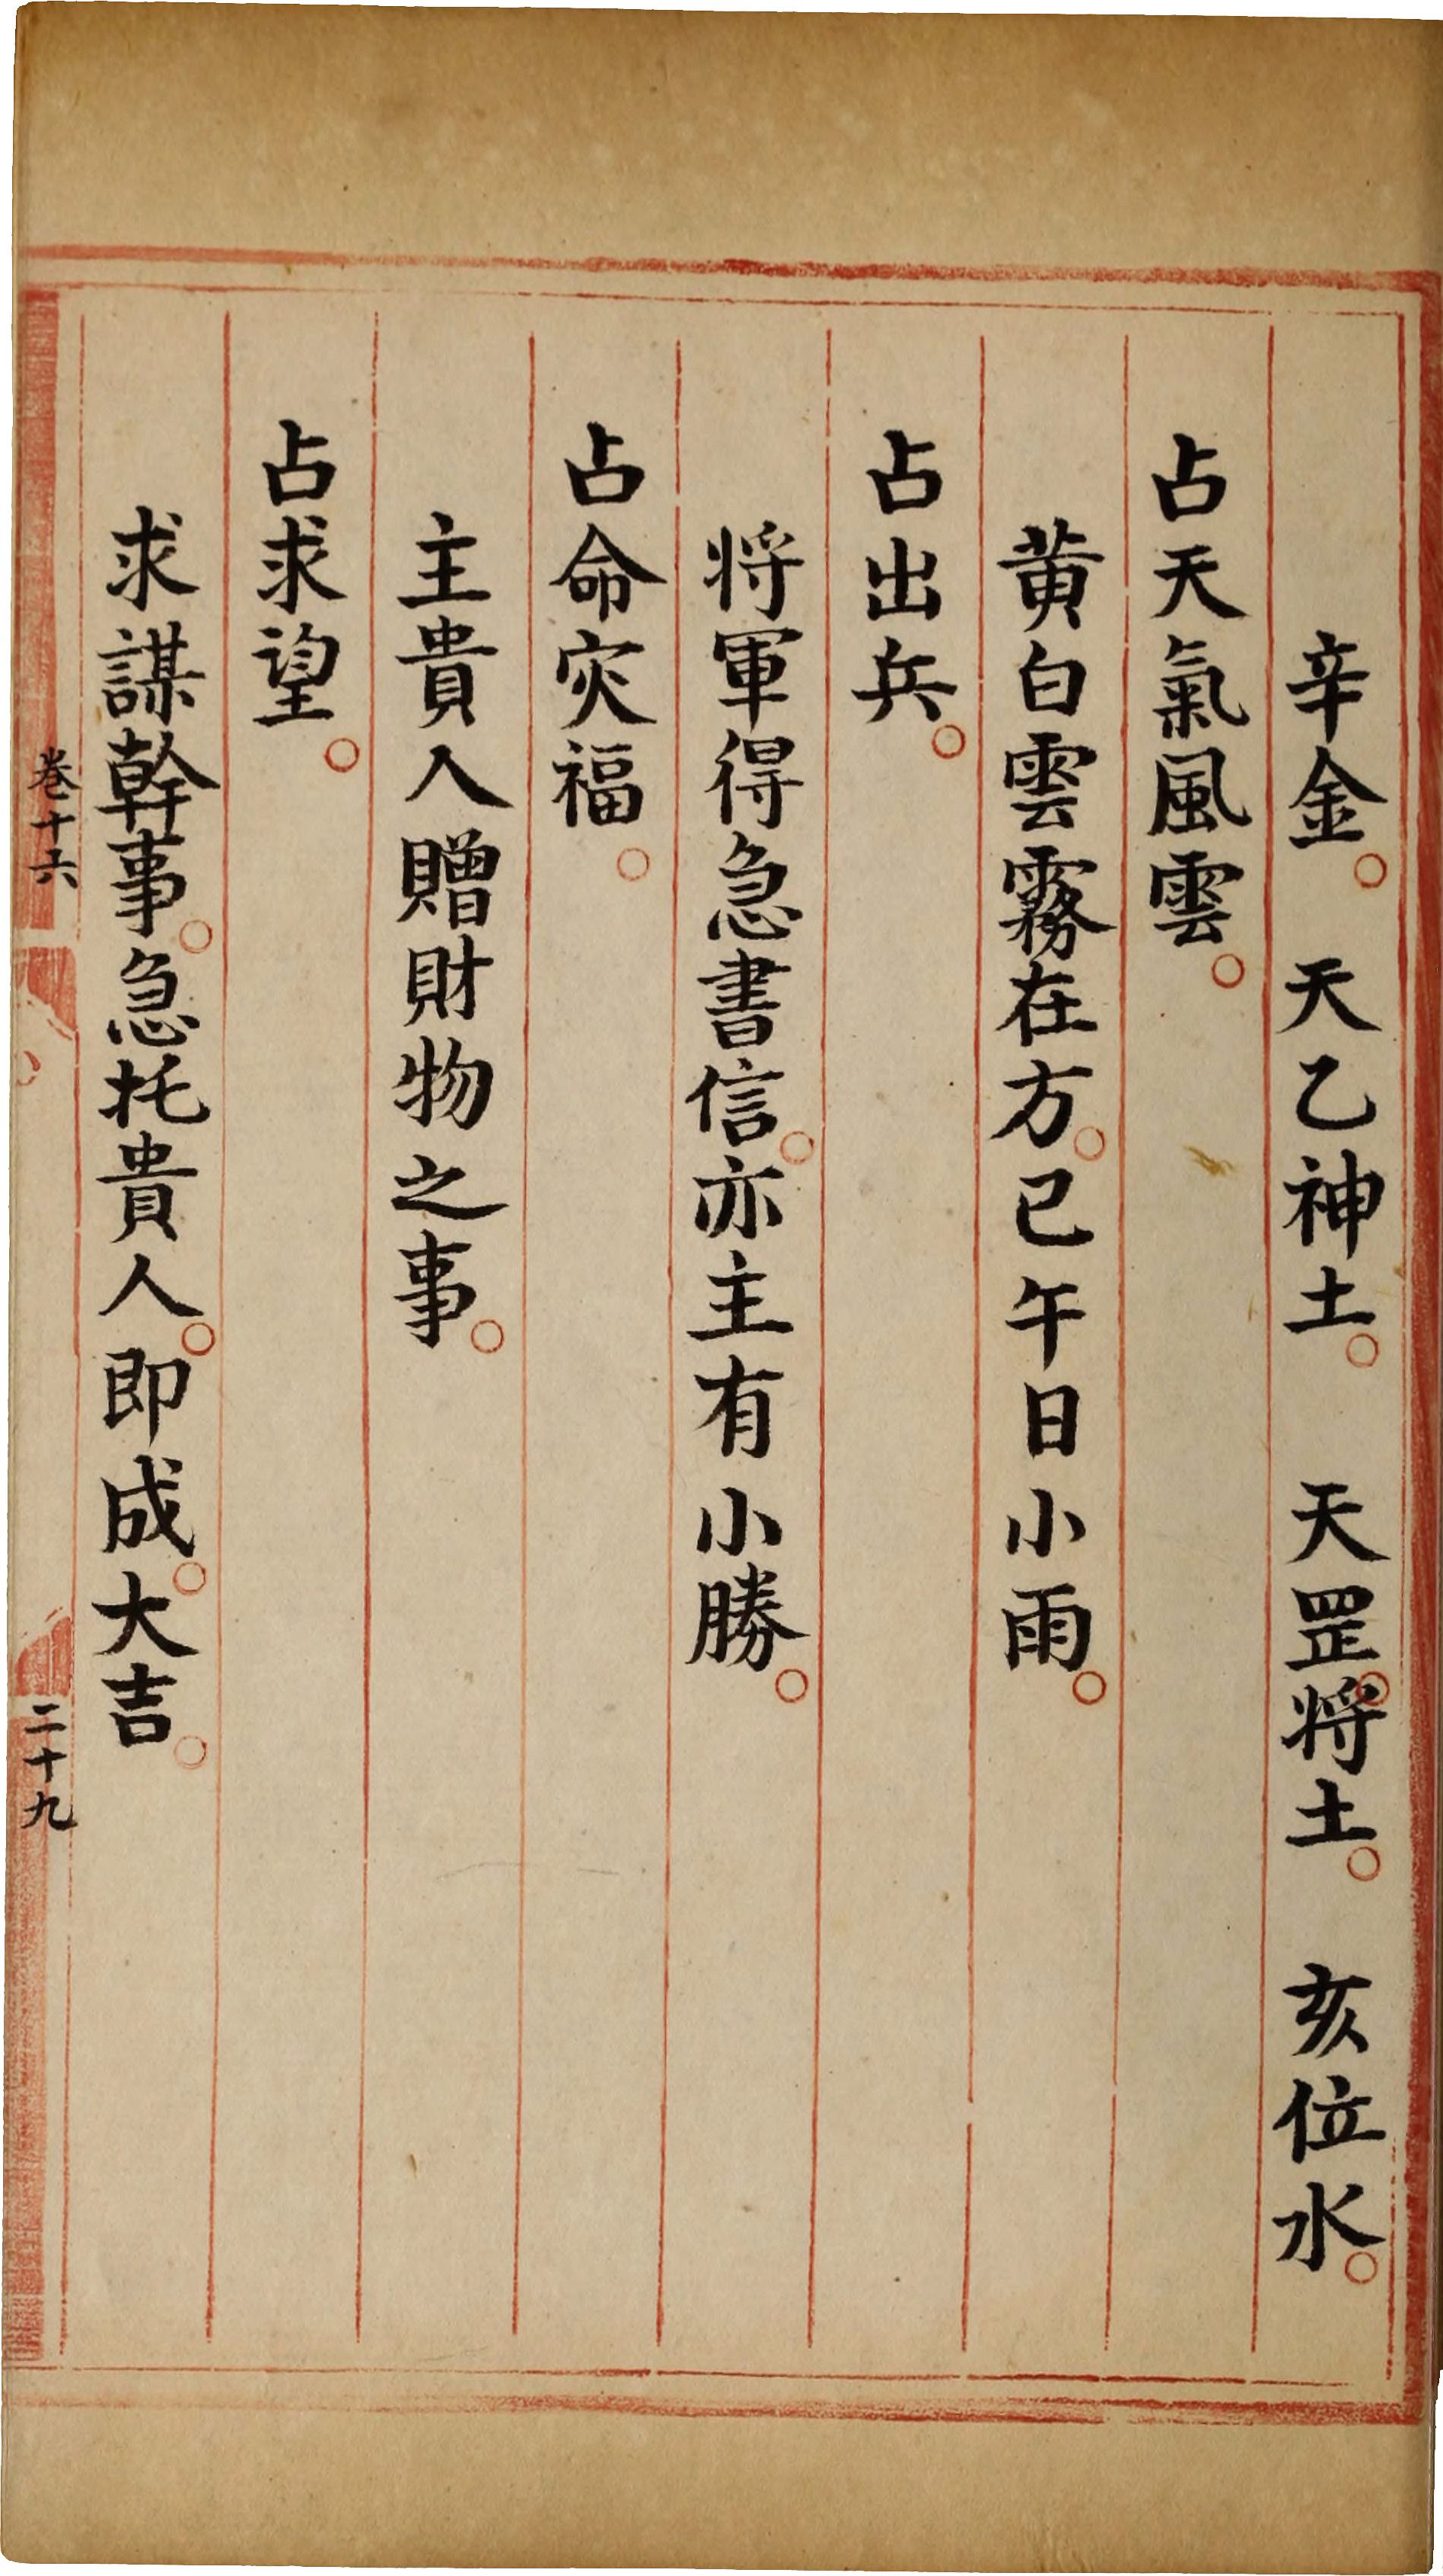 辛金。　天乙神土。　天罡。将土。　亥位水。
占天氣風雲。
黄白雲霧在方。已午日小雨。
占出兵。
将軍得急書信。亦主有小勝。
占命灾福。
主貴人贈財物之事。
占求望。
求謀幹事。急托貴人。即成。大吉。
卷十六
二十九